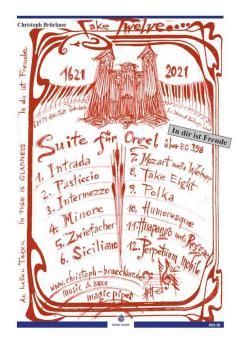 Christoph Brückner
Take Twelve....
1621 2021
In dir ist Freude
Suite für Orgel
über EG 398
1. Intrada
2. Pasticcio
3. Intermezzo
4. Minore
5. Zwiefacher
6. Siciliano
7. Mozart meets Weber
8. Take Eight
9. Polka
10. Humoresque
11. Huapango meets Reggae
12. Perpetuum mobile
www.christoph-brueckner.de
music & more
magic pipes
An hellen Tagen In thee is GLADNESS In dir ist Freude